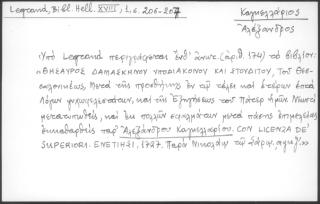 Legrand, Bibl. Hell. XVIII, 1, σ. 206-207
Καγκελλάριος
Ἀλέξανδρος
Ὑπὸ Legrand περιγράφεται ὑπ' ἀριθ. 174) τὸ βιβλίον:
«ΘΗΣΑΥΡΟΣ ΔΑΜΑΣΚΗΝΟΥ ΥΠΟΔΙΑΚΟΝΟΥ ΚΑΙ ΣΤΟΥΔΙΤΟΥ, Τοῦ Θεσ-
σαλονικέως, Μετὰ τῆς προσθήκης ἐν τῷ τέλει καὶ ἑτέρων ἑπτὰ
Λόγων ψυχωφελεστάτων, καὶ τῆς Ἐξηγήσεως τοῦ Πάτερ ἡμῶν Νεωστὶ
μετατυπωθεὶς, καὶ ἐκ πολλῶν σφαλμάτων μετὰ πάσης ἐπιμελείας
διορθωθεὶς παρ' Ἀλεξάνδρου Καγκελλαρίου. CON LICENZA DE'
SUPERIORI. ΕΝΕΤΙΗΣΙ, 1727. Παρὰ Νικολάῳ τῷ Σάρῳ. αψκζ'.»